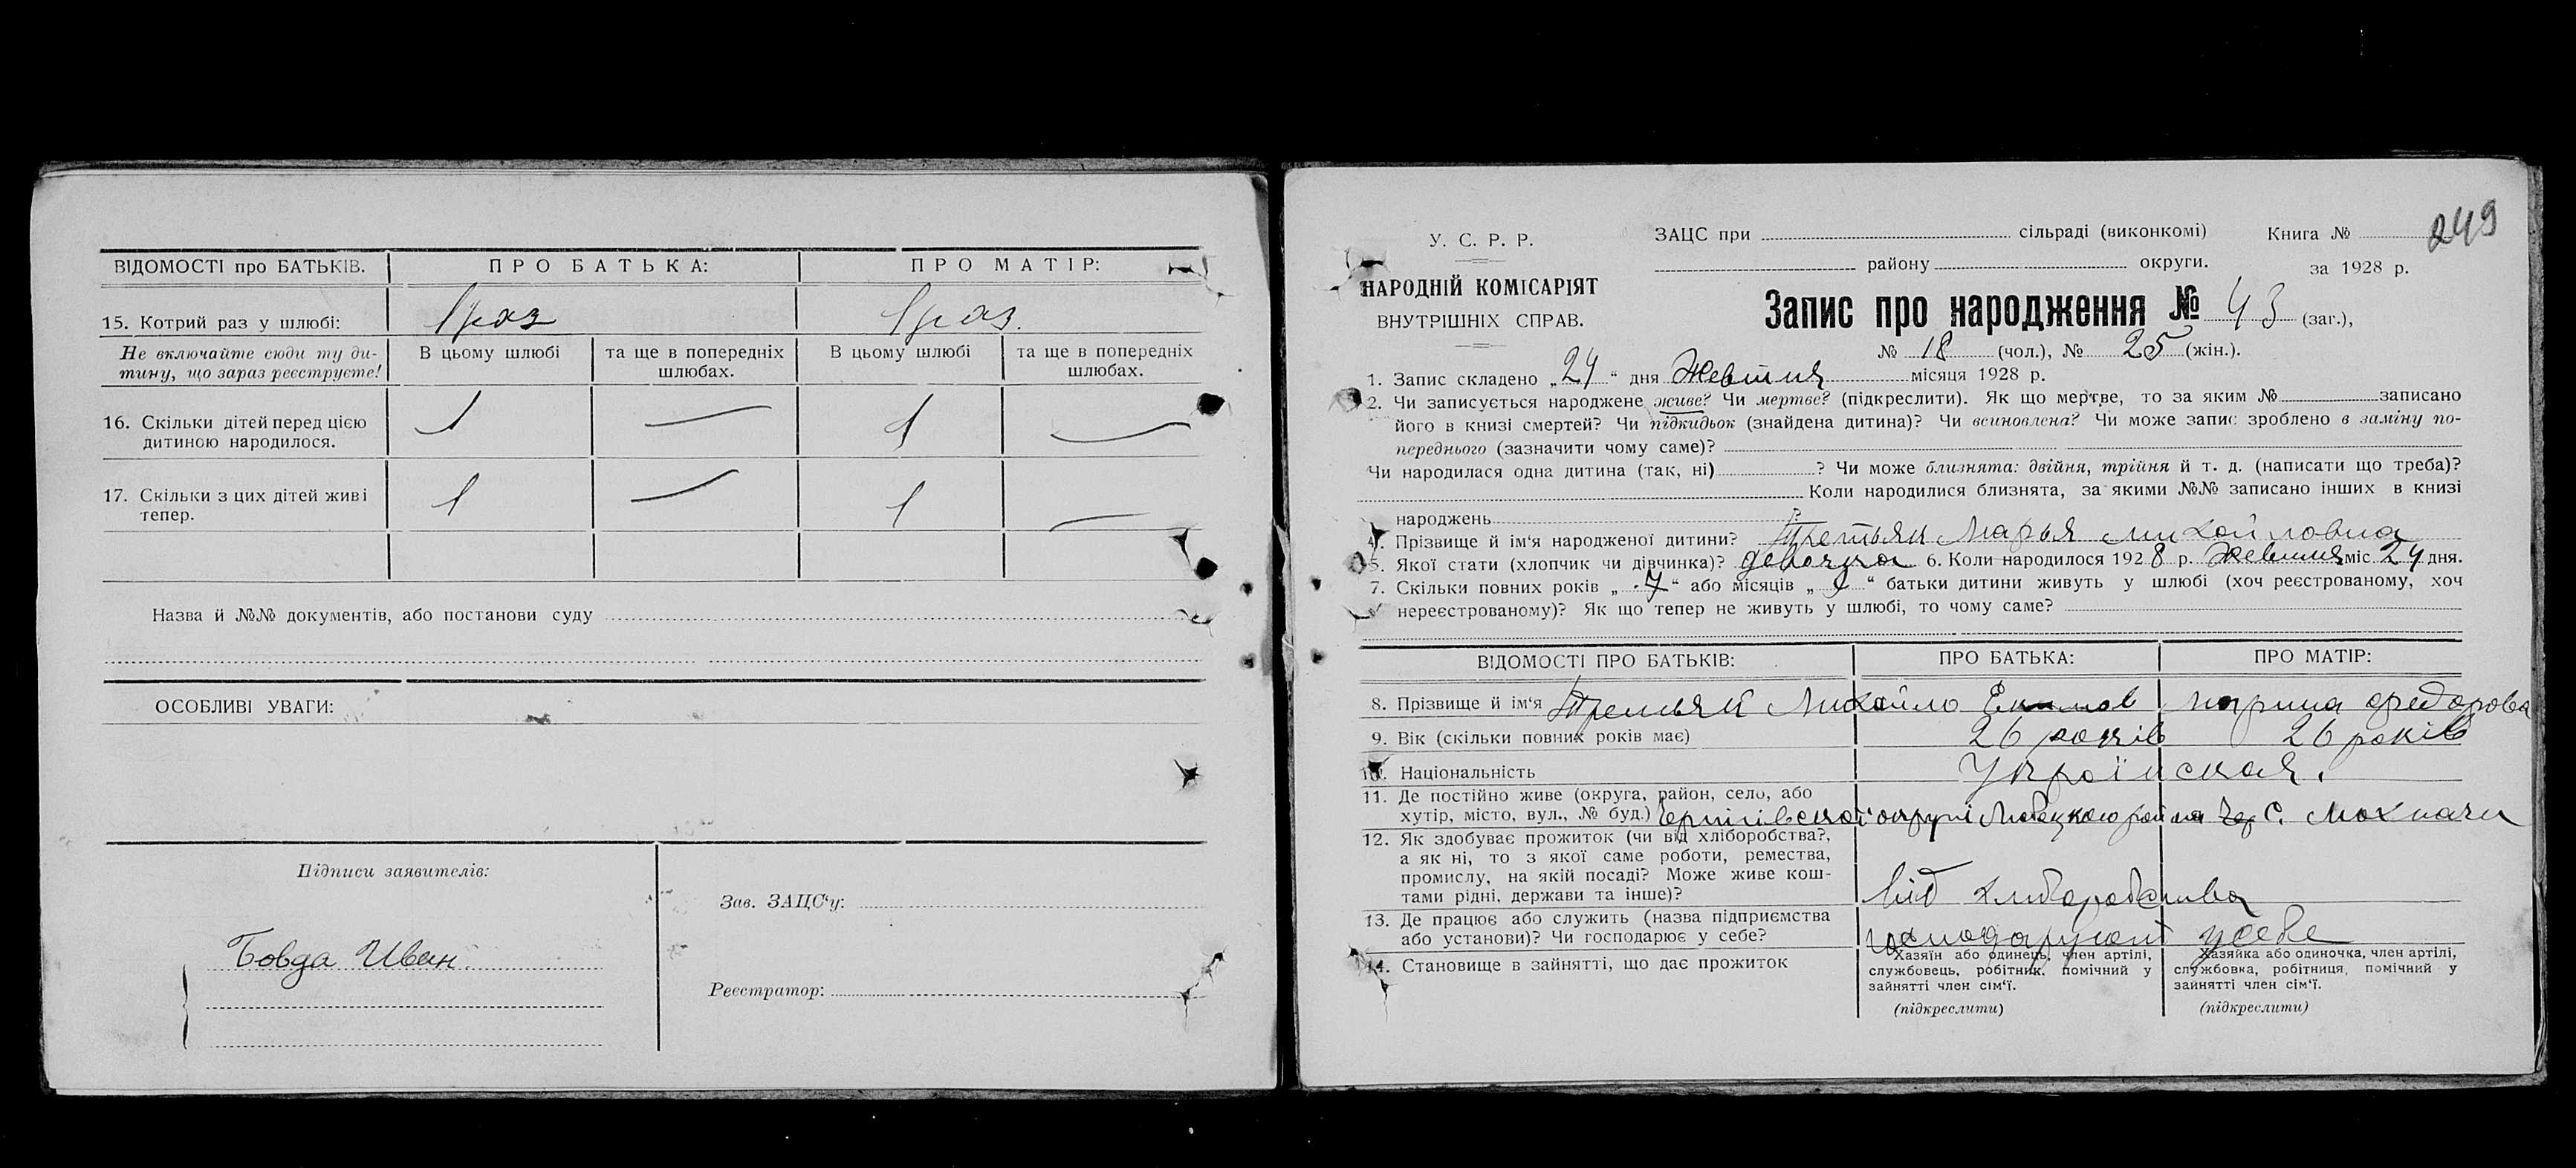 ВІДОМОСТІ про БАТЬКІВ. ПРО БАТЬКА: ПРО МАТІР:
15. Котрий раз у шлюбі: 1 раз 1 раз.
Не включайте сюди ту ди- В цьому шлюбі та ще в попередніх В цьому шлюбі та ще в попередніх
тину, що зараз реєструєте! шлюбах. шлюбах.
16. Скільки дітей перед цією 1 — 1 —
дитиною народилося.
17. Скільки з цих дітей живі 1 — 1 —
тепер.
Назва й №№ документів, або постанови суду
ОСОБЛИВІ УВАГИ:
Підписи заявителів:
Зав. ЗАЦС‘у:
Бовда Иван.
Реєстратор:
249
У. С. Р. Р. ЗАЦС при сільраді (виконкомі) Книга №
району округи. за 1928 р.
НАРОДНІЙ КОМІСАРІЯТ
ВНУТРІШНІХ СПРАВ.
Запис про народження № 43 (заг.),
№ 18 (чол.), № 25 (жін.).
1. Запис складено „24“ дня Жевтня місяця 1928 р.
2. Чи записується народжене живе? Чи мертве? (підкреслити). Як що мертве, то за яким № записано
його в книзі смертей? Чи підкидьок (знайдена дитина)? Чи всиновлена? Чи може запис зроблено в заміну по-
переднього (зазначити чому саме)?
Чи народилася одна дитина (так, ні) ? Чи може близнята: двійня, трійня й т. д. (написати що треба)?
Коли народилися близнята, за якими №№ записано інших в книзі
народжень ?
4. Прізвище й ім‘я народженої дитини? Третьяк Марья Михайловна
5. Якої стати (хлопчик чи дівчинка)? девочка 6. Коли народилося 1928 р. Жевтня міс 24 дня.
7. Скільки повних років „7“ або місяців „ “ батьки дитини живуть у шлюбі (хоч реєстрованому, хоч
нереєстрованому)? Як що тепер не живуть у шлюбі, то чому саме?
ВІДОМОСТІ ПРО БАТЬКІВ: ПРО БАТЬКА: ПРО МАТІР:
8. Прізвище й ім‘я Третьяк Михайло Екимов Марина Федорова
9. Вік (скільки повних років має) 26 років 26 років
10. Національність Українская.
11. Де постійно живе (округа, район, село, або
хутір, місто, вул., № буд.) округі района С. Мохначи
12. Як здобуває прожиток (чи від хліборобства?,
а як ні, то з якої саме роботи, ремества,
промислу, на якій посаді? Може живе кош-
тами рідні, держави та інше)? Від хлиборобства
13. Де працює або служить (назва підприємства
або установи)? Чи господарює у себе? господарують усебе
14. Становище в зайнятті, що дає прожиток
Хазяїн або одинець, член артілі,
службовець, робітник, помічний у
зайнятті член сім‘ї.
(підкреслити)
Хазяйка або одиночка, член артілі,
службовка, робітниця, помічний у
зайнятті член сім‘ї.
(підкреслити)